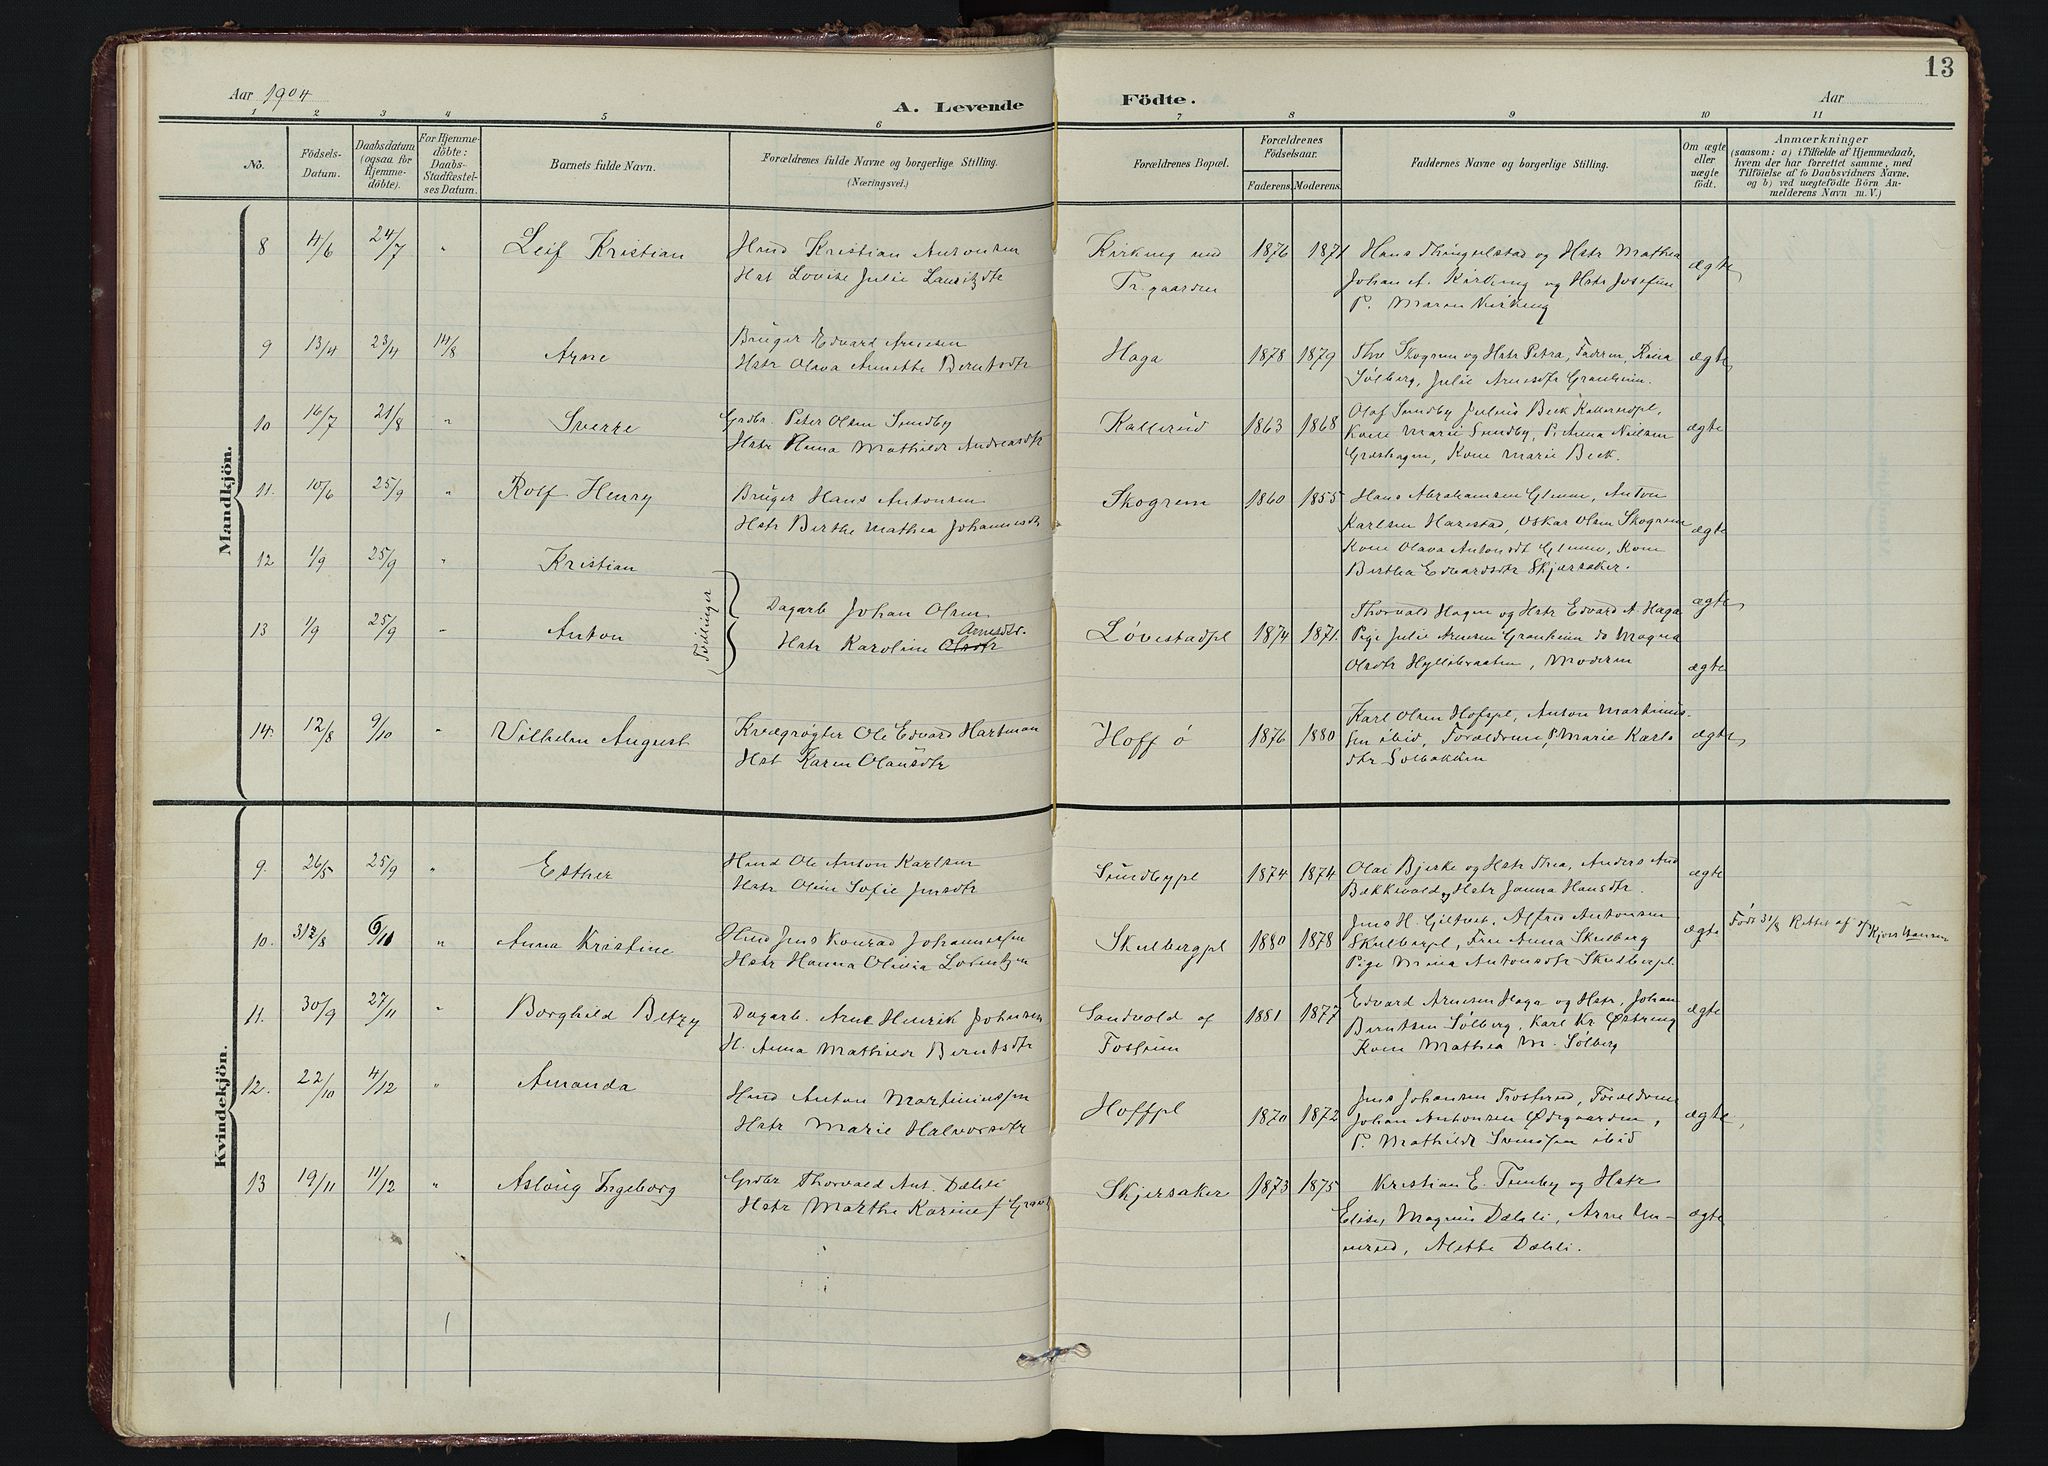 13
Aar 1904
A. Levende Födte.
Aar
1 2 3 4 5 6 7 8 9 10 11
No.
Födsels-Datum.
Daabsdatum (ogsaa for Hjemme-döbte).
For Hjemme-döbte: Daabs-Stadfæstel-ses Datum.
Barnets fulde Navn.
Forældrenes fulde Navne og borgerlige Stilling. (Næringsvei.)
Forældrenes Bopæl.
Forældrenes Födselsaar.
Faderens. Moderens.
Faddernes Navne og borgerlige Stilling.
Om ægte eller uægte födt.
Anmærkninger
(saasom: a) i Tilfælde af Hjemmedaab, hvem der har forrettet samme, med Tilföielse af to Daabsvidners Navne, og b) ved uægtefödte Börn An-melderens Navn m. V.)
Mandkjön.
8 4/6 24/7 " Leif Kristian Hmd Kristian Antonsen Kirkeng 1876 1871 Hans Thingelstad og Hstr Mathea ægte
Hst Lovise Julie Lauritzdtr Pr.gaarden Johan A. Kirkeng og Hstr Josefine
P. Maren Kirkeng
9 13/4 23/4 14/8 Arne Bruger Edvard Arnesen Haga 1878 1879 Thv Skogrem og Hstr Petra, Faderen, Rina ægte
Hstr Olava Annette Berntsdtr Sølberg, Julie Arnesdtr Granheim.
10 16/7 21/8 " Sverre Grdbr. Peter Olsen Sundby Kallerud 1863 1868 Olaf Sundby Julius Beck Kallerudpl, ægte
Hstr Anna Mathilde Andreasdtr Kone Marie Sundby, P. Anna Nielsen
Græshagen, Kone Marie Beck.
11. 10/6 25/9 " Rolf Henry Bruger Hans Antonsen Skogrem 1860 1855 Hans Abrahamsen Glenne, Anton ægte
Hstr Birthe Mathea Johannesdtr Karlsen Harestad, Oskar Olsen Skogrem
Kone Olava Antonsdt Glenne, Kone
Berthea Edvardsdtr Skjersaker.
12 1/9 25/9 " Kristian Dagarb Johan Olsen ægte
13 1/9 25/9 " Anton Tvillinger Hstr Karoline Olsdtr Arnesdtr. Løvestadpl 1874 1871. Thorvald Hagen og Hstr Edvard A. Haga
Pige Julie Arnesen Granheim do Magna
Olsdtr Hyllibraaten, Moderen ægte
14. 12/8 9/10 " Vilhelm August Kvægrøgter Ole Edvard Hartman Hoff ø 1876 1880 Karl Olsen Hofspl, Anton Martinus- ægte
Hst Karen Olausdtr sen ibid, Forældrene, P. Marie Karls
dtr Solbakken
Kvindekjön.
9. 26/5 25/9 " Esther Hmd Ole Anton Karlsen Sundbypl 1874 1874 Olai Bjerke og Hstr Thea, Anders And ægte
Hstr Oline Sofie Jensdtr Bækkevold og Hstr Janna Hansdtr.
10. 31/8 6/11 " Anna Kristine Hmd Jens Konrad Johannesen Skulbergpl 1880 1878 Jens H. Giltvet, Alfred Antonsen ægte Født 31/8 Rettet af
Hstr Hanna Olivia Lorentzen Skulberpl, Frue Anna Skulberg
Pige Mina Antonsdtr Skulbergpl
11. 30/9 27/11 " Borghild Betzy Dagarb. Arne Henrik Johansen Sandvold af 1881 1877 Edvard Arnesen Haga og Hstr, Johan ægte
H. Anna Mathilde Berntsdtr Fosheim Berntsen Sølberg, Karl Kr Østreng
Kone Mathea M. Sølberg
12. 22/10 4/12 " Amanda Hmd Anton Martinussen Hoffpl 1870 1872 Jens Johansen Trosterud, Forældrene ægte
Hstr Marie Halvorsdtr Johan Antonsen Ødegaarden,
P. Mathilde Svendsen ibid
13 19/11 11/12 " Aslaug Ingeborg Grdbr Thorvald Ant. Dæhli Skjersaker 1873 1875 Kristian E. Tømby og Hstr
Hstr Marthe Karine f. Elise, Magnus Dæhli, Arne ægte
Alette Dæhli.